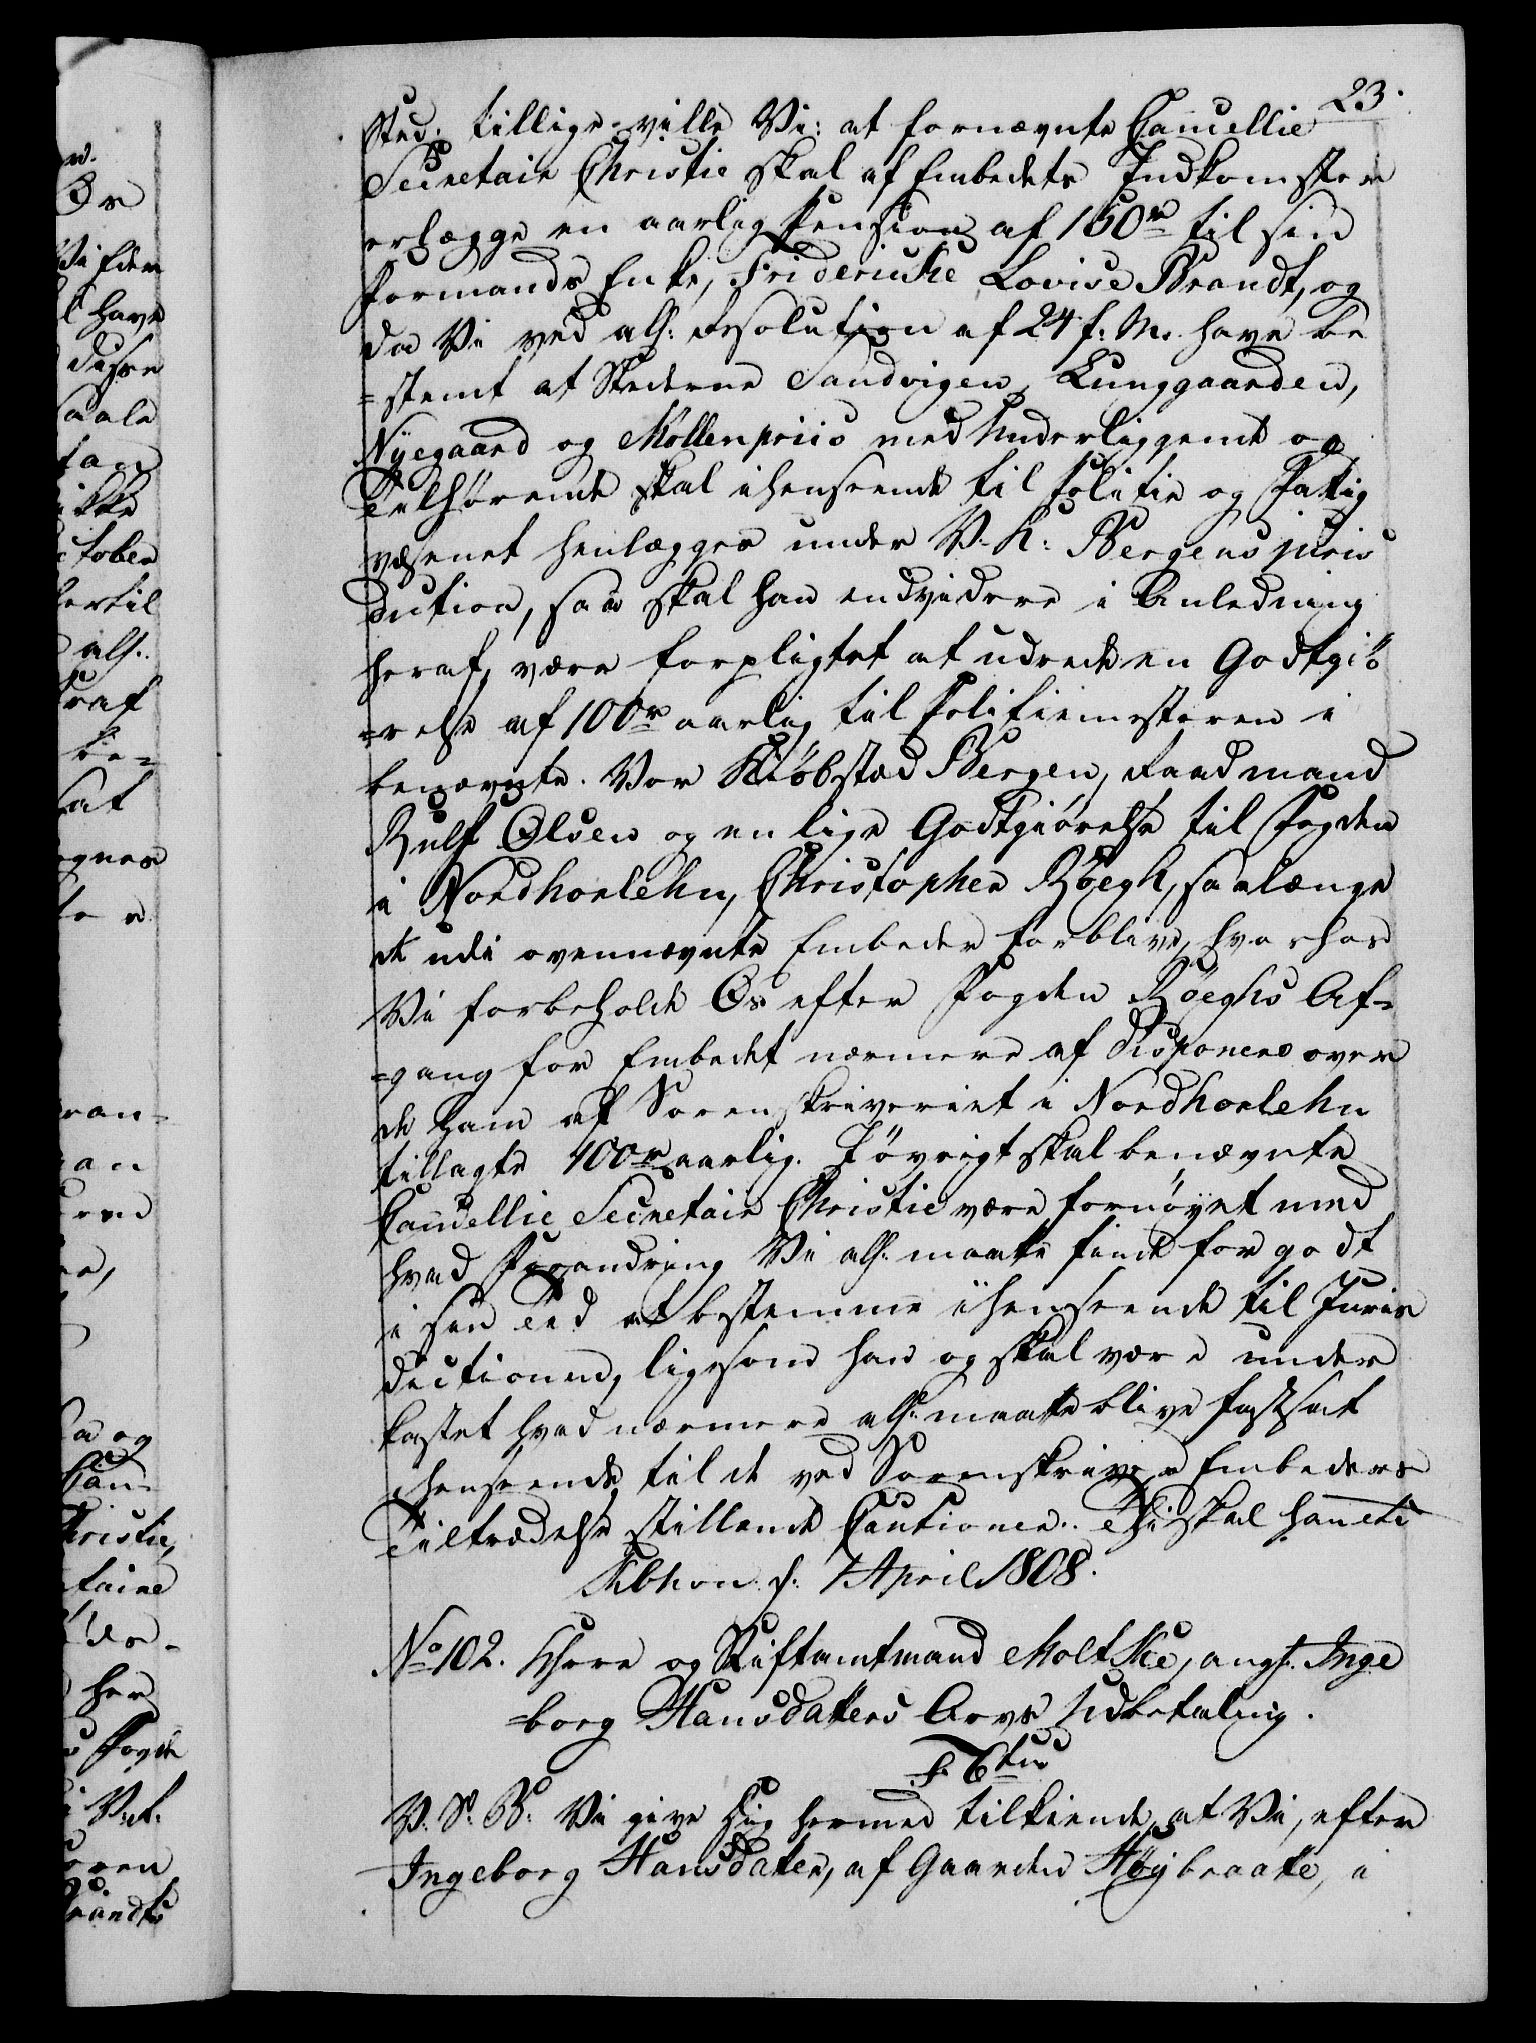 23.
Sted. tillige ville Vi: at fornævnte Cancellie
Secretair Christie skal af Embedets Indkomster
erlægge en aarlig Pension af 150r til sin
Formands Enke, Friderichke Lovise Brandt, og
da Vi ved alh: Resolution af 24 f: M. have be
=stemt at Stederne Sandvigen, Lunggaarden,
Nyegaard og Møllenpriis med Underliggende og
Tilhørende skal i henseende til Politie og Fattig
væsenet henlægges under V. K: Bergens juris
diction, saa skal han endvidere i Anledning
heraf, være forpligtet at udrede en Godtgiö
=relse af 100r aarlig til Politiemesteren i
benævnte. Vor Kiöbstæd Bergen, Raadmand
Rulf Olsen og en lige Godtgiörelse til Fogden
i Nordhorlehn, Christopher Böegh, saalænge
de udi ovennævnte Embeder forblive, hvorhos
Vi forbeholde Os efter Fogden Böeghs Af=
=gang for Embedet nærmere at disponere over
de ham af Sorenskriveriet i Nordhorlehn
tillagte 400r aarlig. I øvrigt skal benævnte
Cancellie Secretair Christie være fornöyet med
hvad Forandring Vi alh: maatte finde for godt
i sin Tid at bestemme i henseende til Juris
dictionen, ligesom han og skal være under
kastet hvad nærmere alh: maatte blive fastsat
i henseende til de ved Sorenskriver Embeders
Tiltrædelse stillende Cautioner. Thi skal han etc
Kbhvn d: 7 April 1808.
No 102. Hherr og Stiftamtmand Moltke, angh. Inge
=borg Hansdatters Arvs Udbetaling.
F. 6tus
V. S. B. Vi give Dig hermed tilkiende, at Vi, efter
Ingeborg Hansdatter, af Gaarden Höybraate, i